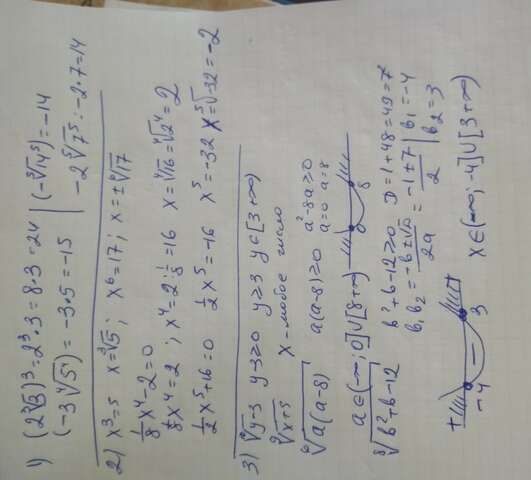 1) (2∛3)³ = 2³·3 = 8·3 = 24 | (-⁵√14⁵) = -14
(-3∜5⁴) = -3·5 = -15 | -2⁵√7⁵ = -2·7 = 14
2) x³=5 x=∛5; x⁶=17; x=±⁶√17
1/8 x⁴-2=0
1/8 x⁴=2; x⁴=2:1/8=16 x=∜16=∜2⁴=2
1/2 x⁵+16=0 1/2 x⁵=-16 x⁵=-32 x=⁵√-32=-2
3) √y-3 y-3≥0 y≥3 y∈[3+∞)
√x+5 x-любое число
⁶√a(a-8) a(a-8)≥0 a²-8a≥0
a=0 a=8
a∈(-∞;0]∪[8+∞) 8
⁸√b²+b-12 b²+b-12≥0 D=1+48=49=7
b₁b₂=-b±√D/2a=-1±7/2 | b₁=-4
b₂=3
+ -4 - 3 x∈(-∞;-4]∪[3+∞)